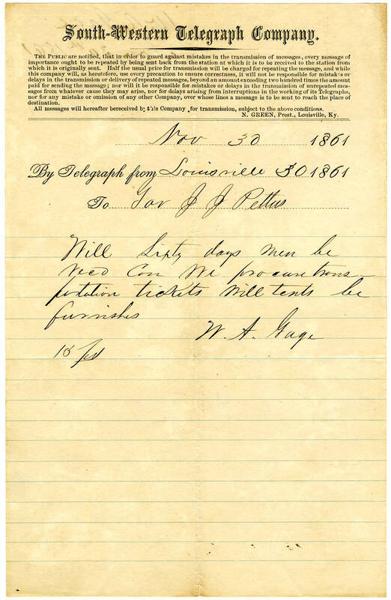 South-Western Telegraph Company.
The Public are notified, that in order to guard against mistakes in the transmission of messages, every message of
importance ought to be repeated by being sent back from the station at which it is to be received to the station from
which it is originally sent. Half the usual price for transmission will be charged for repeating the message, and while
this company will, as heretofore, use every precaution to ensure correctness, it will not be responsible for mistakes or
delays in the transmission or delivery of repeated messages, beyond an amount exceeding two hundred times the amount
paid for sending the message; nor will it be responsible for mistakes or delays in the transmission of unrepeated mes-
sages from whatever cause they may arise, nor for delays arising from interruptions in the working of its Telegraphs,
nor for any mistake or omission of any other Company, over whose lines a message is to be sent to reach the place of
destination.
All messages will hereafter be received by this Company for transmission, subject to the above conditions.
N. GREEN, Prest., Louisville, Ky.
Nov 30 1861
By Telegraph from Louisville 30 1861
To Gov J J Pettus
Will Sixty days men be
Recd Can We procure trans
portation tickets Will tents be
furnishes
W. A. Gage
18 pd